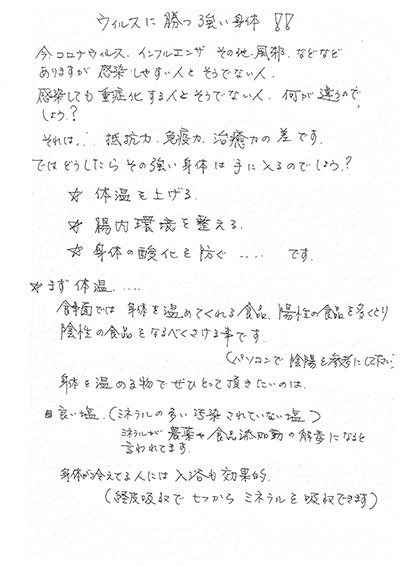 ウィルスに勝つ強い身体!!
今、コロナウィルス、インフルエンザ その他、風邪、などなど
ありますが 感染しやすい人と そうでない人、
感染しても 重症化する人とそうでない人、何が違うので
しょう?
それは、、抵抗力、免疫力、治癒力の差です。
ではどうしたら その強い身体は 手に入るのでしょう?
☆ 体温を上げる、
☆ 腸内環境を整える、
☆ 身体の酸化を防ぐ ‥‥ です。
☆まず体温、‥‥
食事面では 身体を温めてくれる食品、陽性の食品を多くとり
陰性の食品をなるべくさける事です。
(パソコンで 陰陽を参考にして下さい)
身体を温める物でぜひとって頂きたいのは、
良い塩、(ミネラルの多い 汚染されていない塩)
ミネラルが 農薬や食品添加物の解毒になると
言われてます。
身体が冷えてる人には 入浴も効果的、
(経皮吸収で そこから ミネラルを吸収できます)